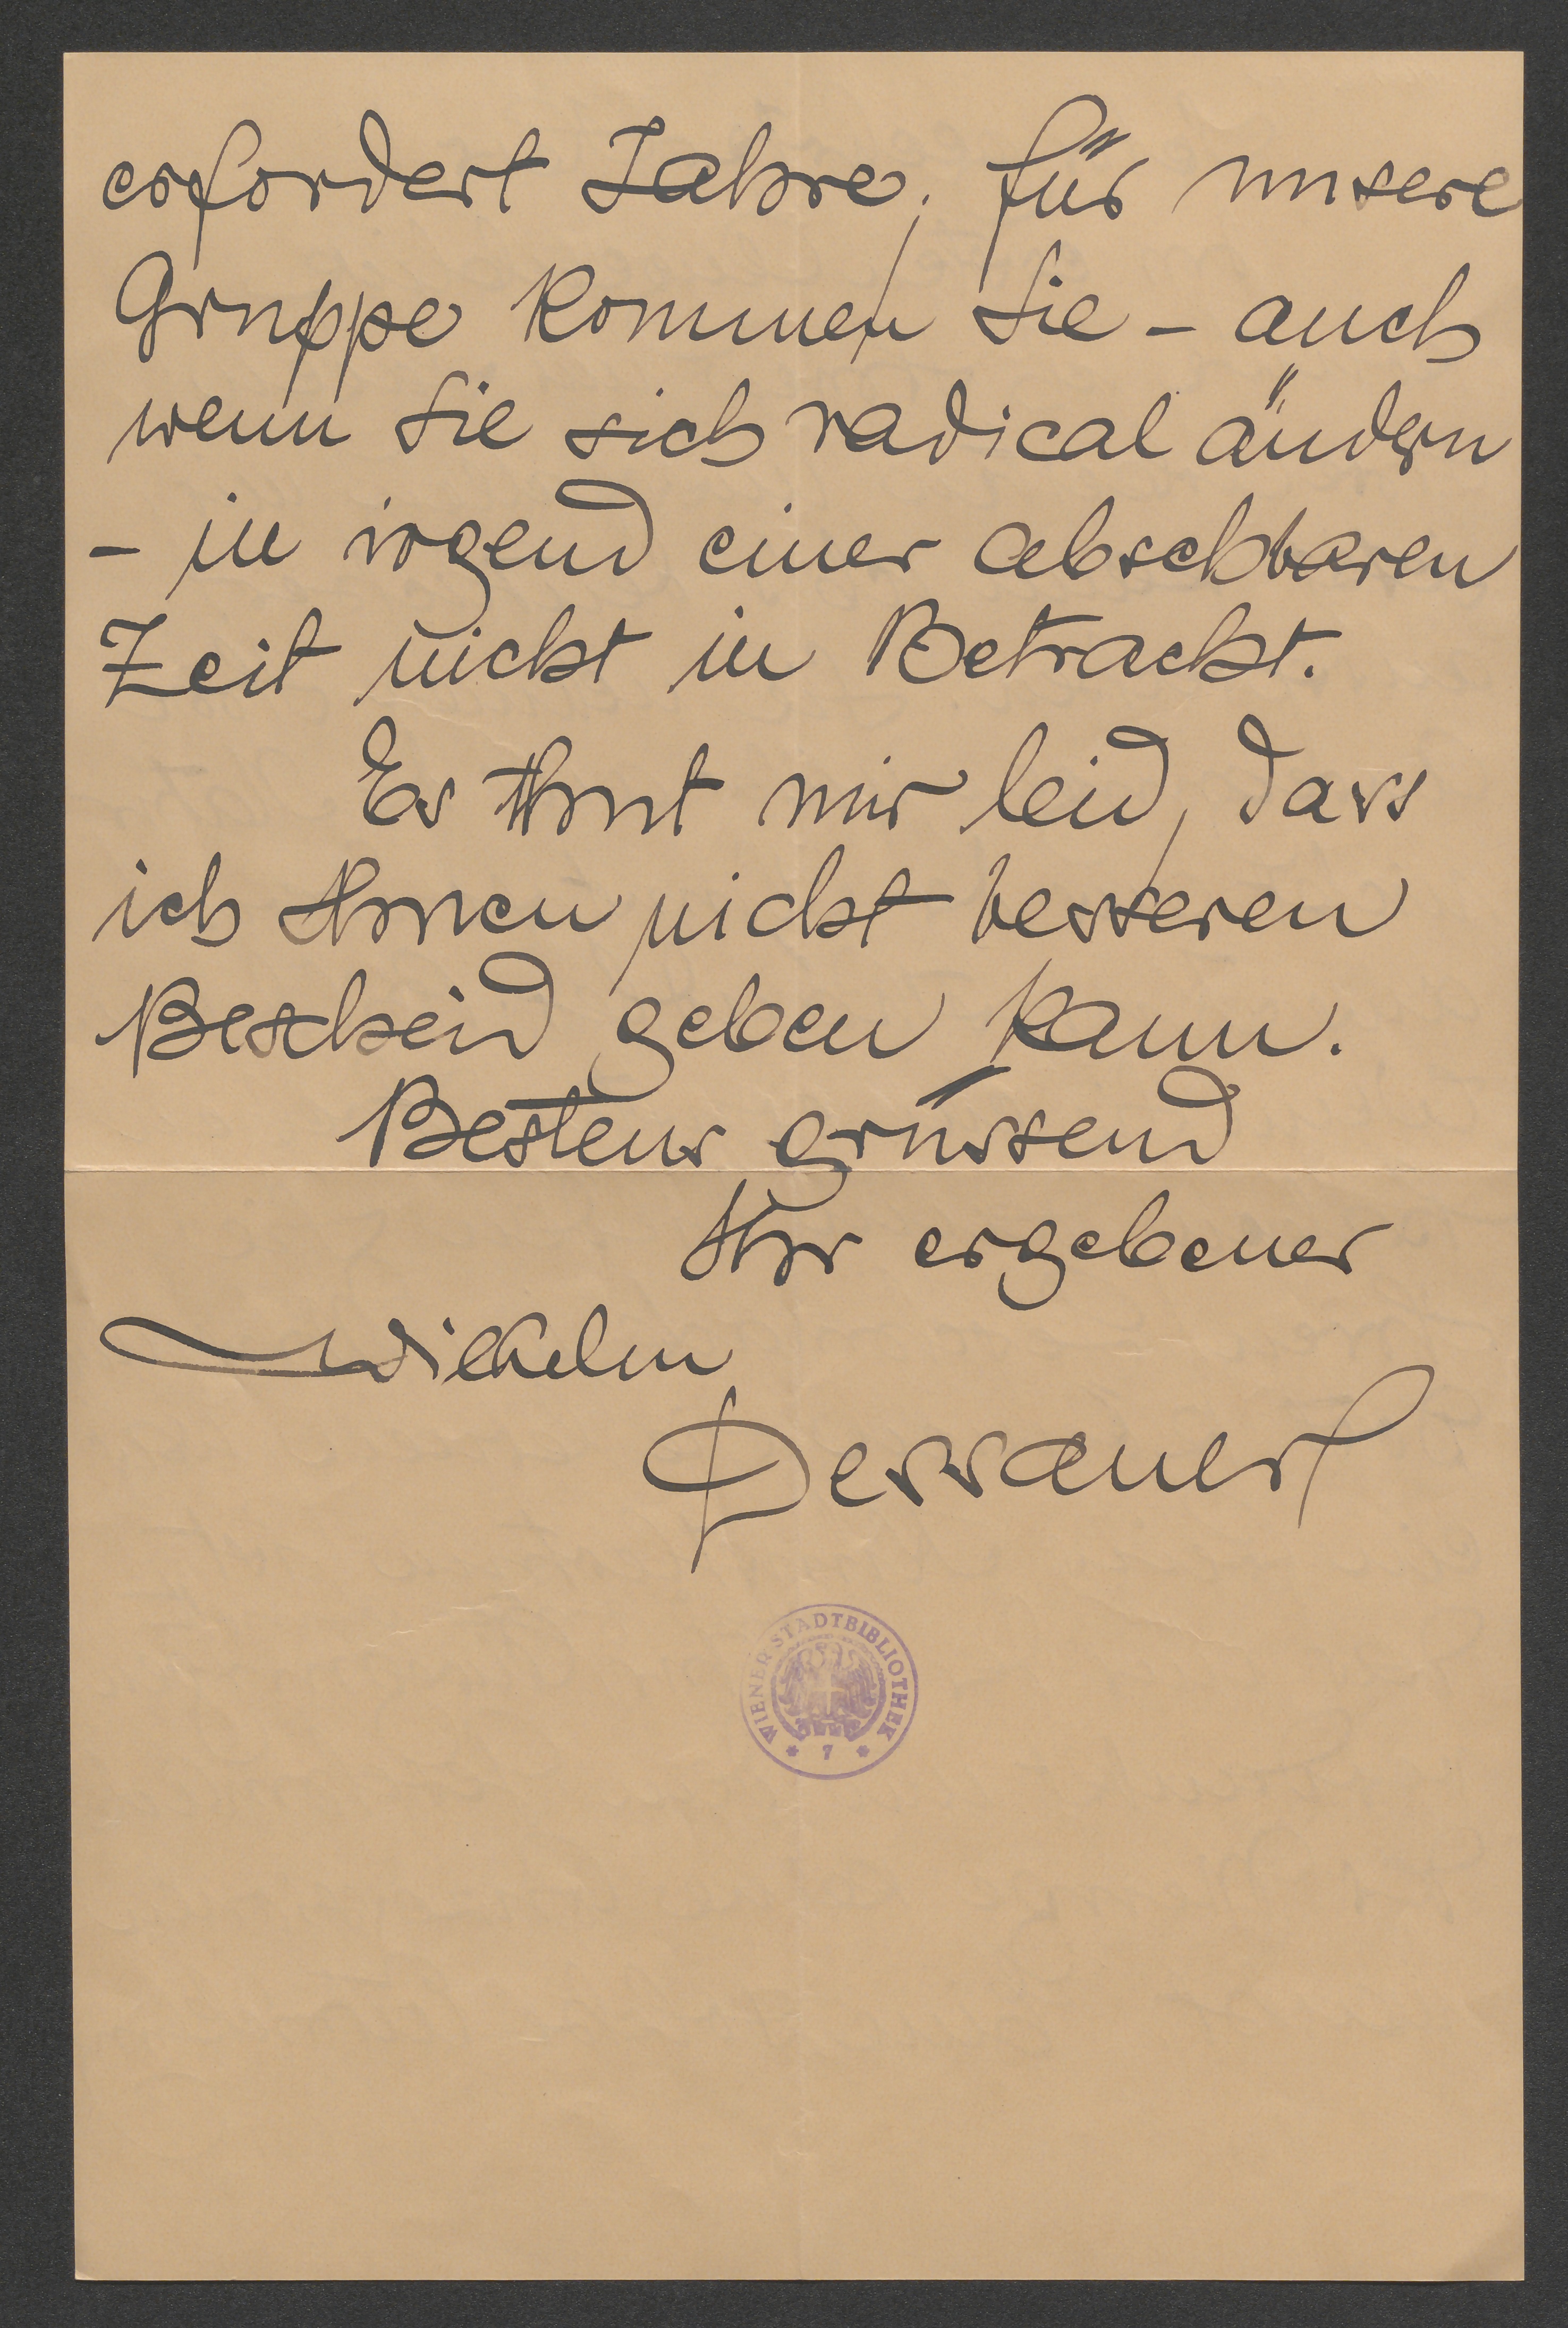 erfordert Jahre; für unsere
Gruppe kommen Sie – auch
wenn Sie sich radical ändern
– in irgend einer absehbaren
Zeit nicht in Betracht.
Es thut mir leid, dass
ich Ihnen nicht besseren
Bescheid geben kann.
Bestens grüssend
Ihr ergebener
Wilhelm
Dessauer
WIENER STADTBIBLIOTHEK
* 7 *